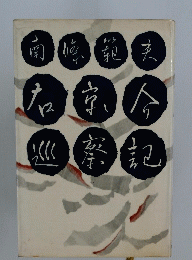 南條範夫
右京介
巡察記